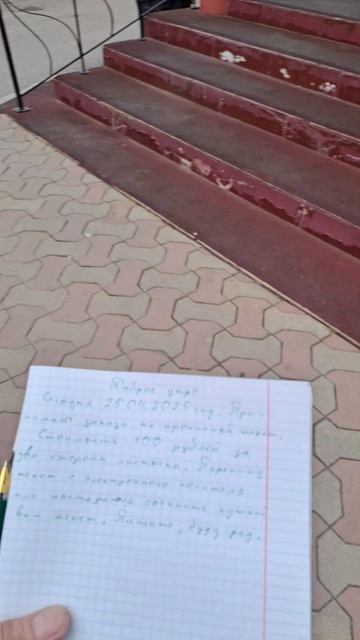 Доброе утро
Сегодня 25.04.2025 год. При-
нимаю заказы на прописной текст.
Стоимость 100 рублей за
две стороны листочка. Перепишу
текст с электронного носителя
или постараюсь сочинить нужный
вам текст. Пишите, буду рад.